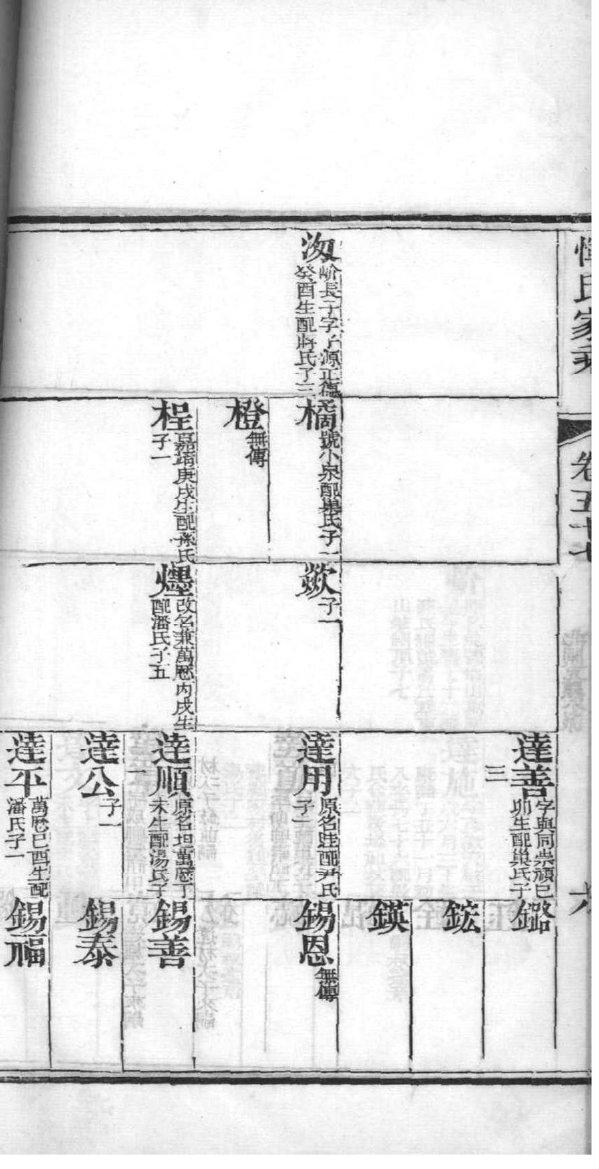 惲氏家乘
卷五十七
六
汝
嵛長子字子源正德
癸酉生配蔣氏子三
橘
號小泉配巢氏子一
橙
無傳
桯
嘉靖庚戌生配孫氏
子一
歘
子一
㷸
改名兼萬曆丙戌生
配潘氏子五
達善
字與同崇禎己
卯生配巢氏子
三
達用
原名㘭配尹氏
子一
達順
原名坦萬曆丁
未生配湯氏子
一
達公
子一
達平
萬曆己酉生配
潘氏子一
鋐
鍈
錫恩
無傳
錫善
錫泰
錫福